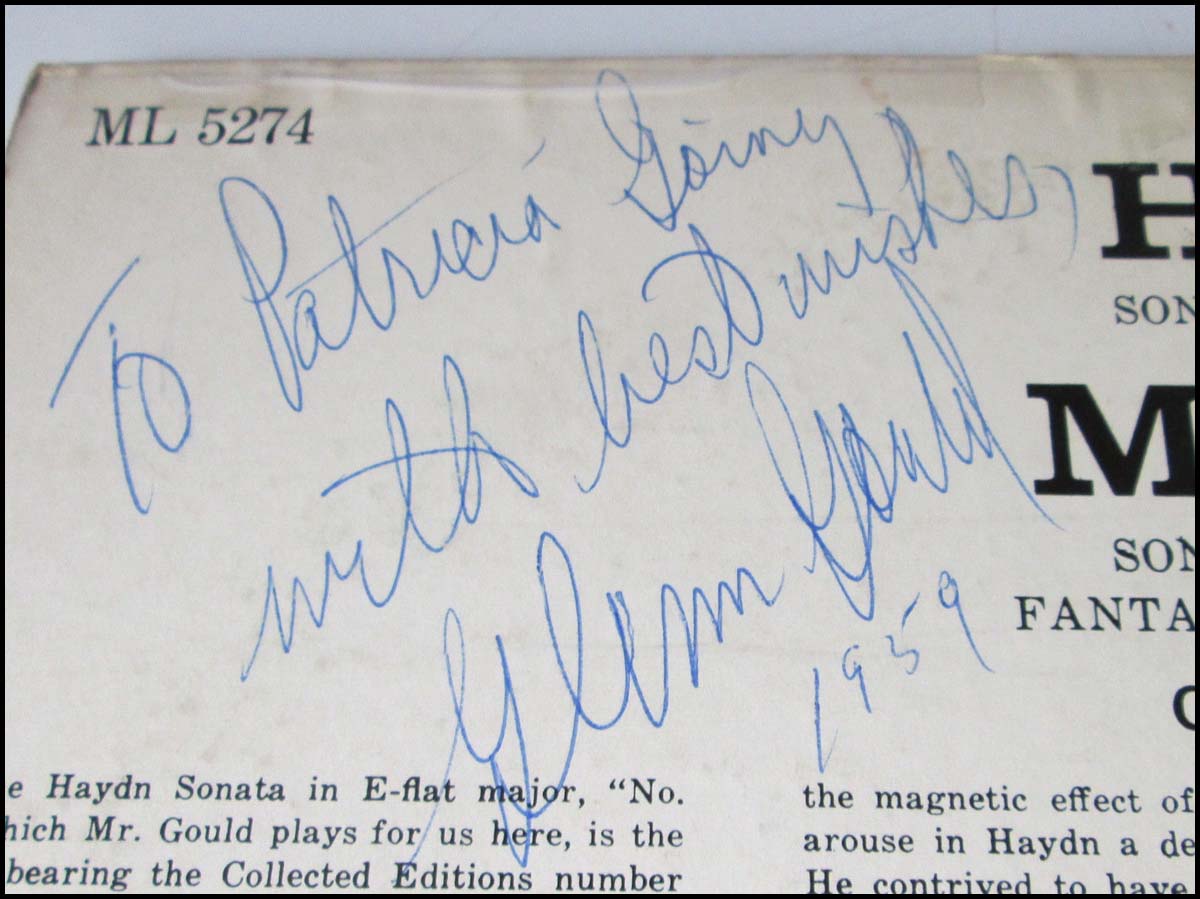 ML 5274
To Patricia Górny
with best wishes,
Glenn Gould
1959
H
SON
M
SON
FANTA
e Haydn Sonata in E-flat major, “No.
hich Mr. Gould plays for us here, is the
bearing the Collected Editions number
the magnetic effect of
arouse in Haydn a de
He contrived to have